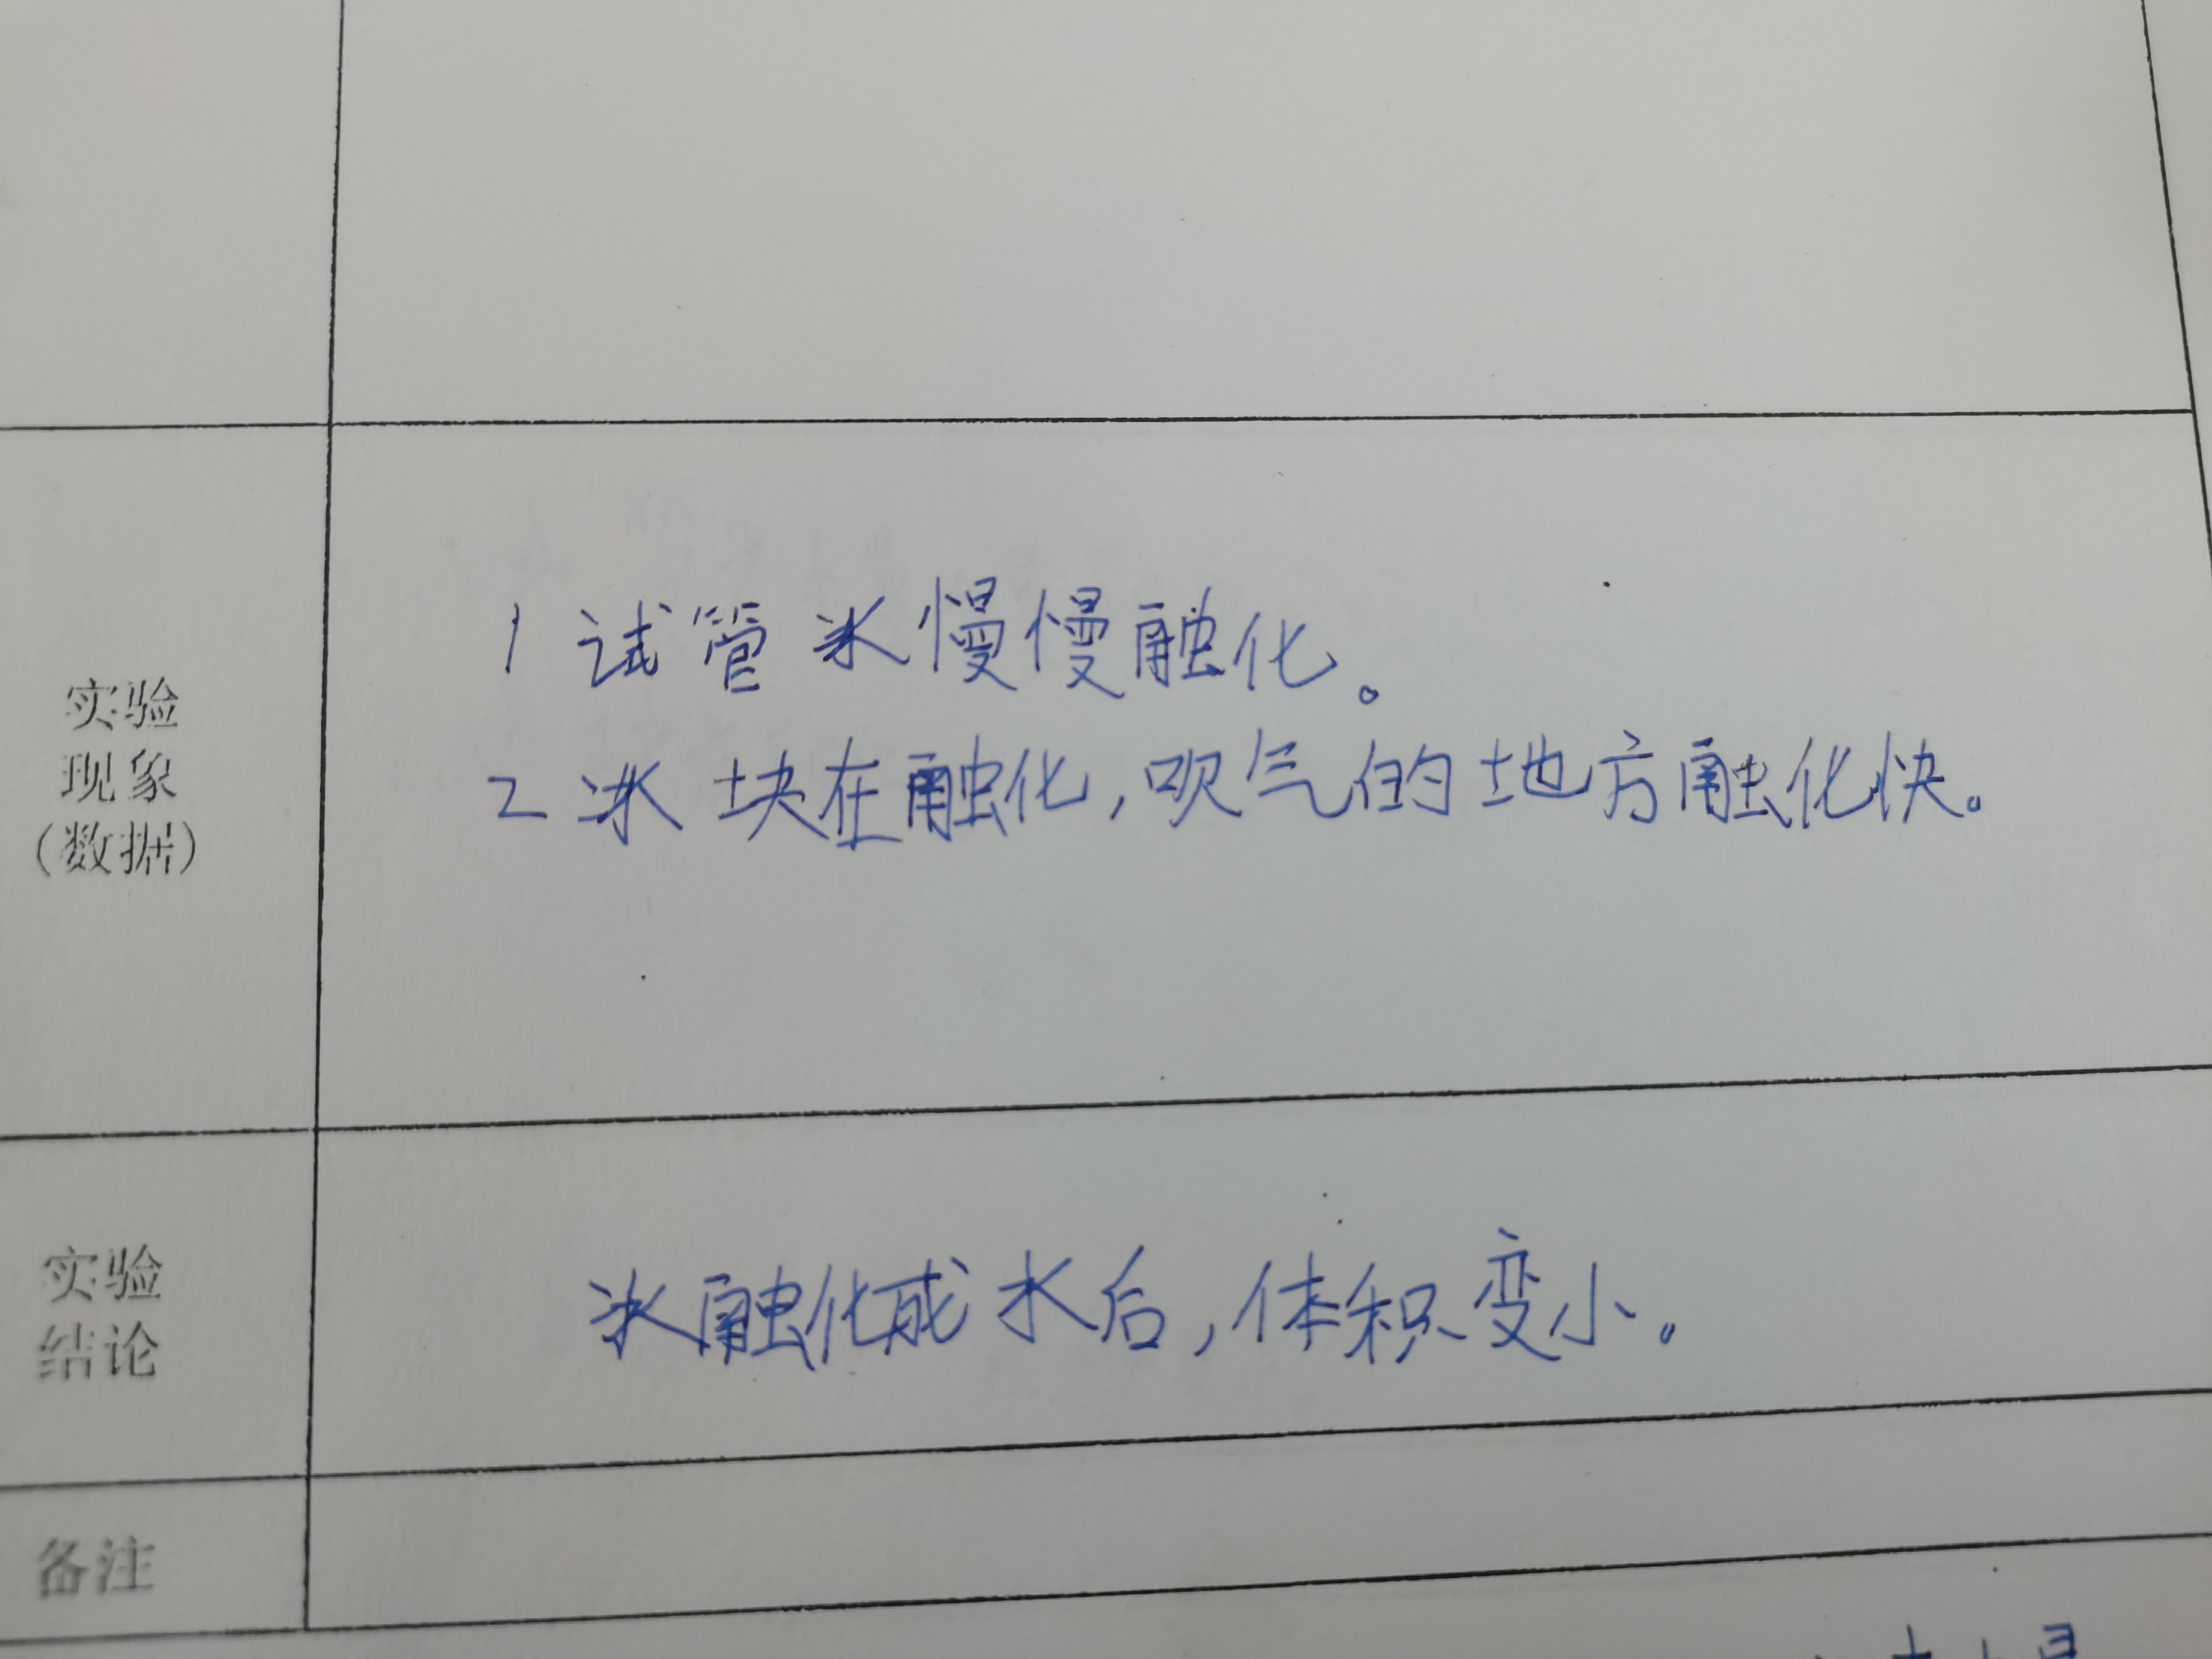 实验
现象
(数据)
1 试管冰慢慢融化。
2 冰块在融化,吹气的地方融化快。
实验
结论
冰融化成水后,体积变小。
备注